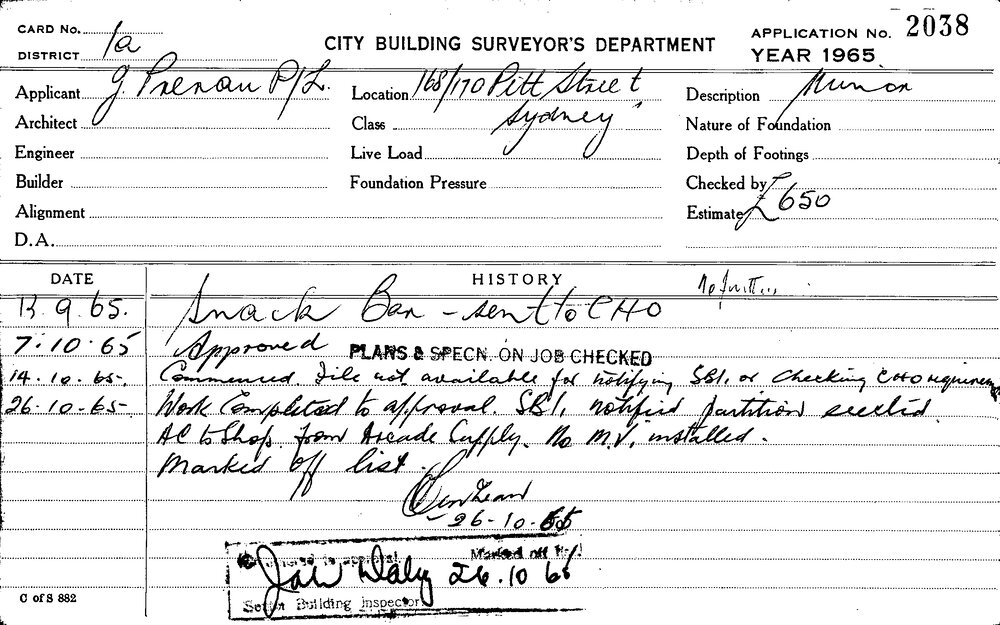 CARD No.
DISTRICT 1a
CITY BUILDING SURVEYOR'S DEPARTMENT
APPLICATION No. 2038
YEAR 1965
Applicant G. P/L.
Location 168/170 Pitt Street
Sydney
Description Minor
Architect
Class
Nature of Foundation
Engineer
Live Load
Depth of Footings
Builder
Foundation Pressure
Checked by
Alignment
Estimate £650
D.A.
DATE
HISTORY
13.9.65. Snack Bar - sent to CHO
7.10.65 Approved PLANS & SPECN. ON JOB CHECKED
14.10.65. Commenced. File not available for notifying SBI. or checking CHO
26.10.65 Work Completed to approval. SBI. notified partition erected
AC to Shop from Arcade Supply. No M.V. installed.
Marked off list.
26-10-65
Marked off
26.10 65
Senior Building Inspector
C of S 882